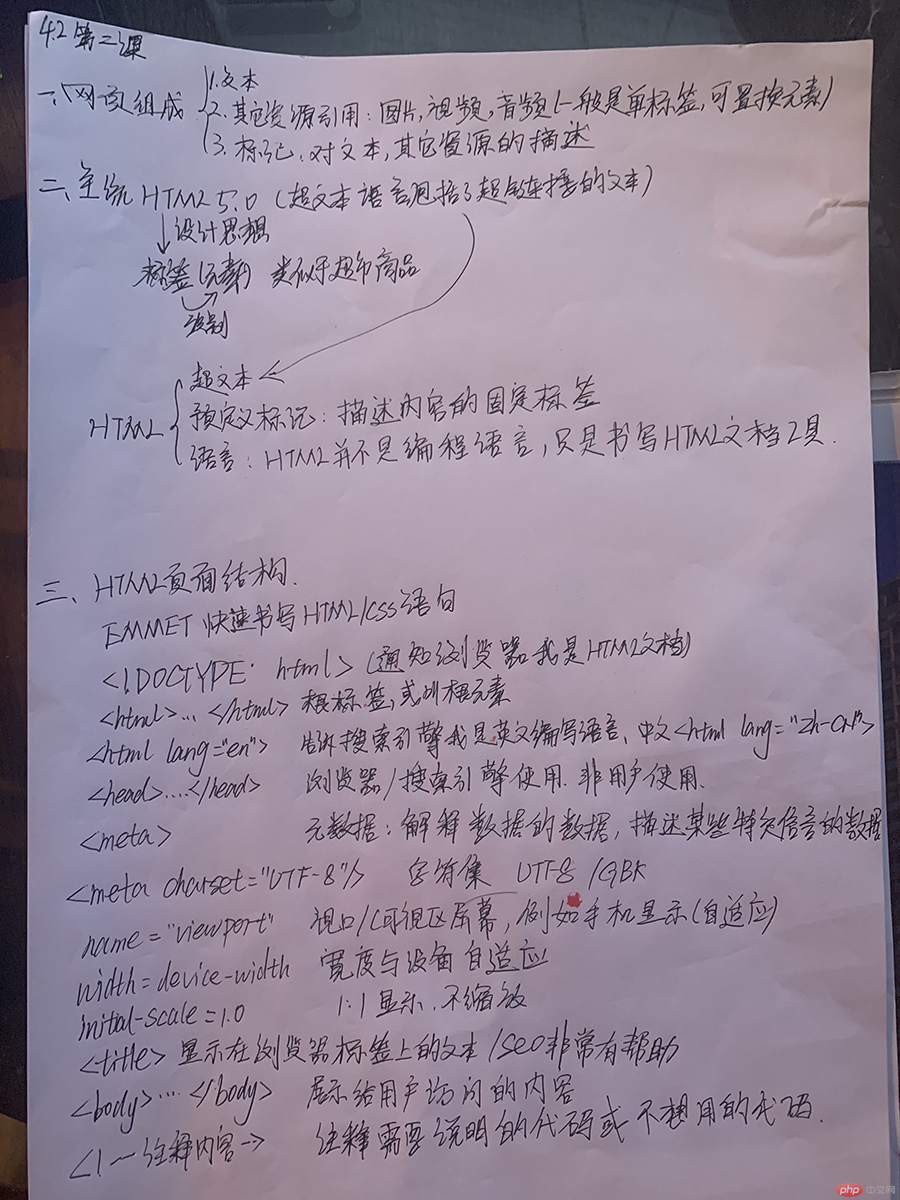 4.2 第二课
一、网页组成 1.文本
2.其它资源引用：图片，视频，音频（一般是单标签，可置换元素）
3.标记，对文本，其它资源的描述
二、主流HTML5.0（超文本语言包括了超链接的文本）
设计思想
标签（元素） 类似于超市商品
级别
HTML 超文本
预定义标记：描述内容的固定标签
语言：HTML并不是编程语言，只是书写HTML文档工具.
三、HTML页面结构.
EMMET 快速书写HTML/CSS语句
<!DOCTYPE html>（通知浏览器我是HTML文档）
<html>...</html> 根标签，或叫根元素
<html lang="en"> 告诉搜索引擎我是英文编写语言、中文<html lang="zh-CN">
<head>....</head> 浏览器/搜索引擎使用.非用户使用.
<meta> 元数据：解释数据的数据，描述某些特定信息的数据
<meta charset="UTF-8"/> 字符集 UTF-8 /GBK
name="viewport" 视口/(可视区屏幕，例如手机显示(自适应)
width=device-width 宽度与设备自适应
initial-scale=1.0 1:1显示.不缩放
<title> 显示在浏览器标签上的文本/SEO非常有帮助
<body>....</body> 展示给用户访问的内容
<!--注释内容--> 注释需要说明的代码或不想用的代码.
php 中文网